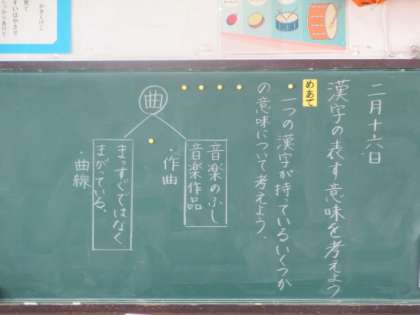 二月十六日
漢字の表す意味を考えよう
めあて
・一つの漢字が持っているいくつか
の意味について考えよう。
曲
音楽のふし
音楽作品
・作曲
まっすぐではなく
まがっている。
・曲線